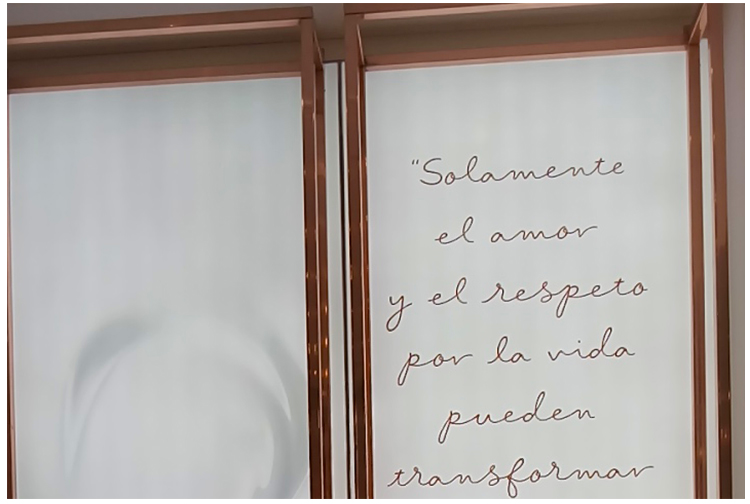 "Solamente
el amor
y el respeto
por la vida
pueden
transformar